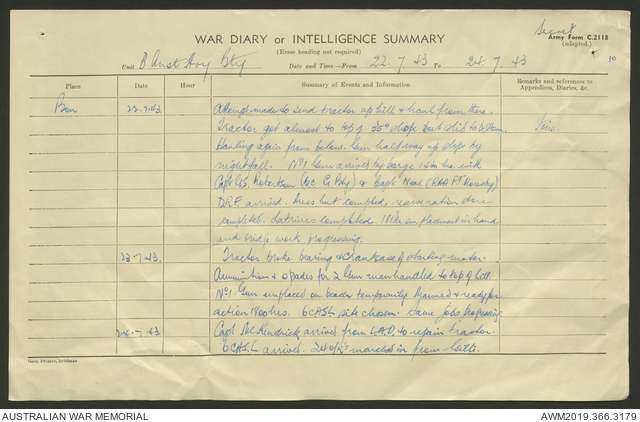 Secret
WAR DIARY or INTELLIGENCE SUMMARY
Army Form C.2118
(adapted.)
(Erase heading not required)
10
Unit Aust Hvy Bty Date and Time—From 22.7.43 To 24.7.43
Place Date Hour Summary of Events and Information Remarks and references to Appendices, Diaries, &c.
22.7.43. Attempt made to send tractor up hill & haul from there.
Tractor got almost to top of 35° slope but slid to bottom.
Hauling again from below. Gun halfway up slope by
nightfall. No 1 Gun arrived by barge with
Capt Robertson (OC G Bty) & Capt (RAA Pt Moresby)
arrived. Mess hut completed, reservation store
completed. Latrines completed. emplacement in hand
and bridge work progressing.
23.7.43. Tractor broke bearing & crankcase of starting motor.
Ammunition & spades for 2 Gun manhandled to top of hill.
No 1 Gun emplaced on beach temporarily. Manned & ready for
action 1800 hrs. 6 CASL site chosen. Same jobs progressing
24.7.43 Capt McKendrick arrived from L.A.D. to repair tractor.
6 CASL arrived. marched in from
AUSTRALIAN WAR MEMORIAL
AWM2019.366.3179